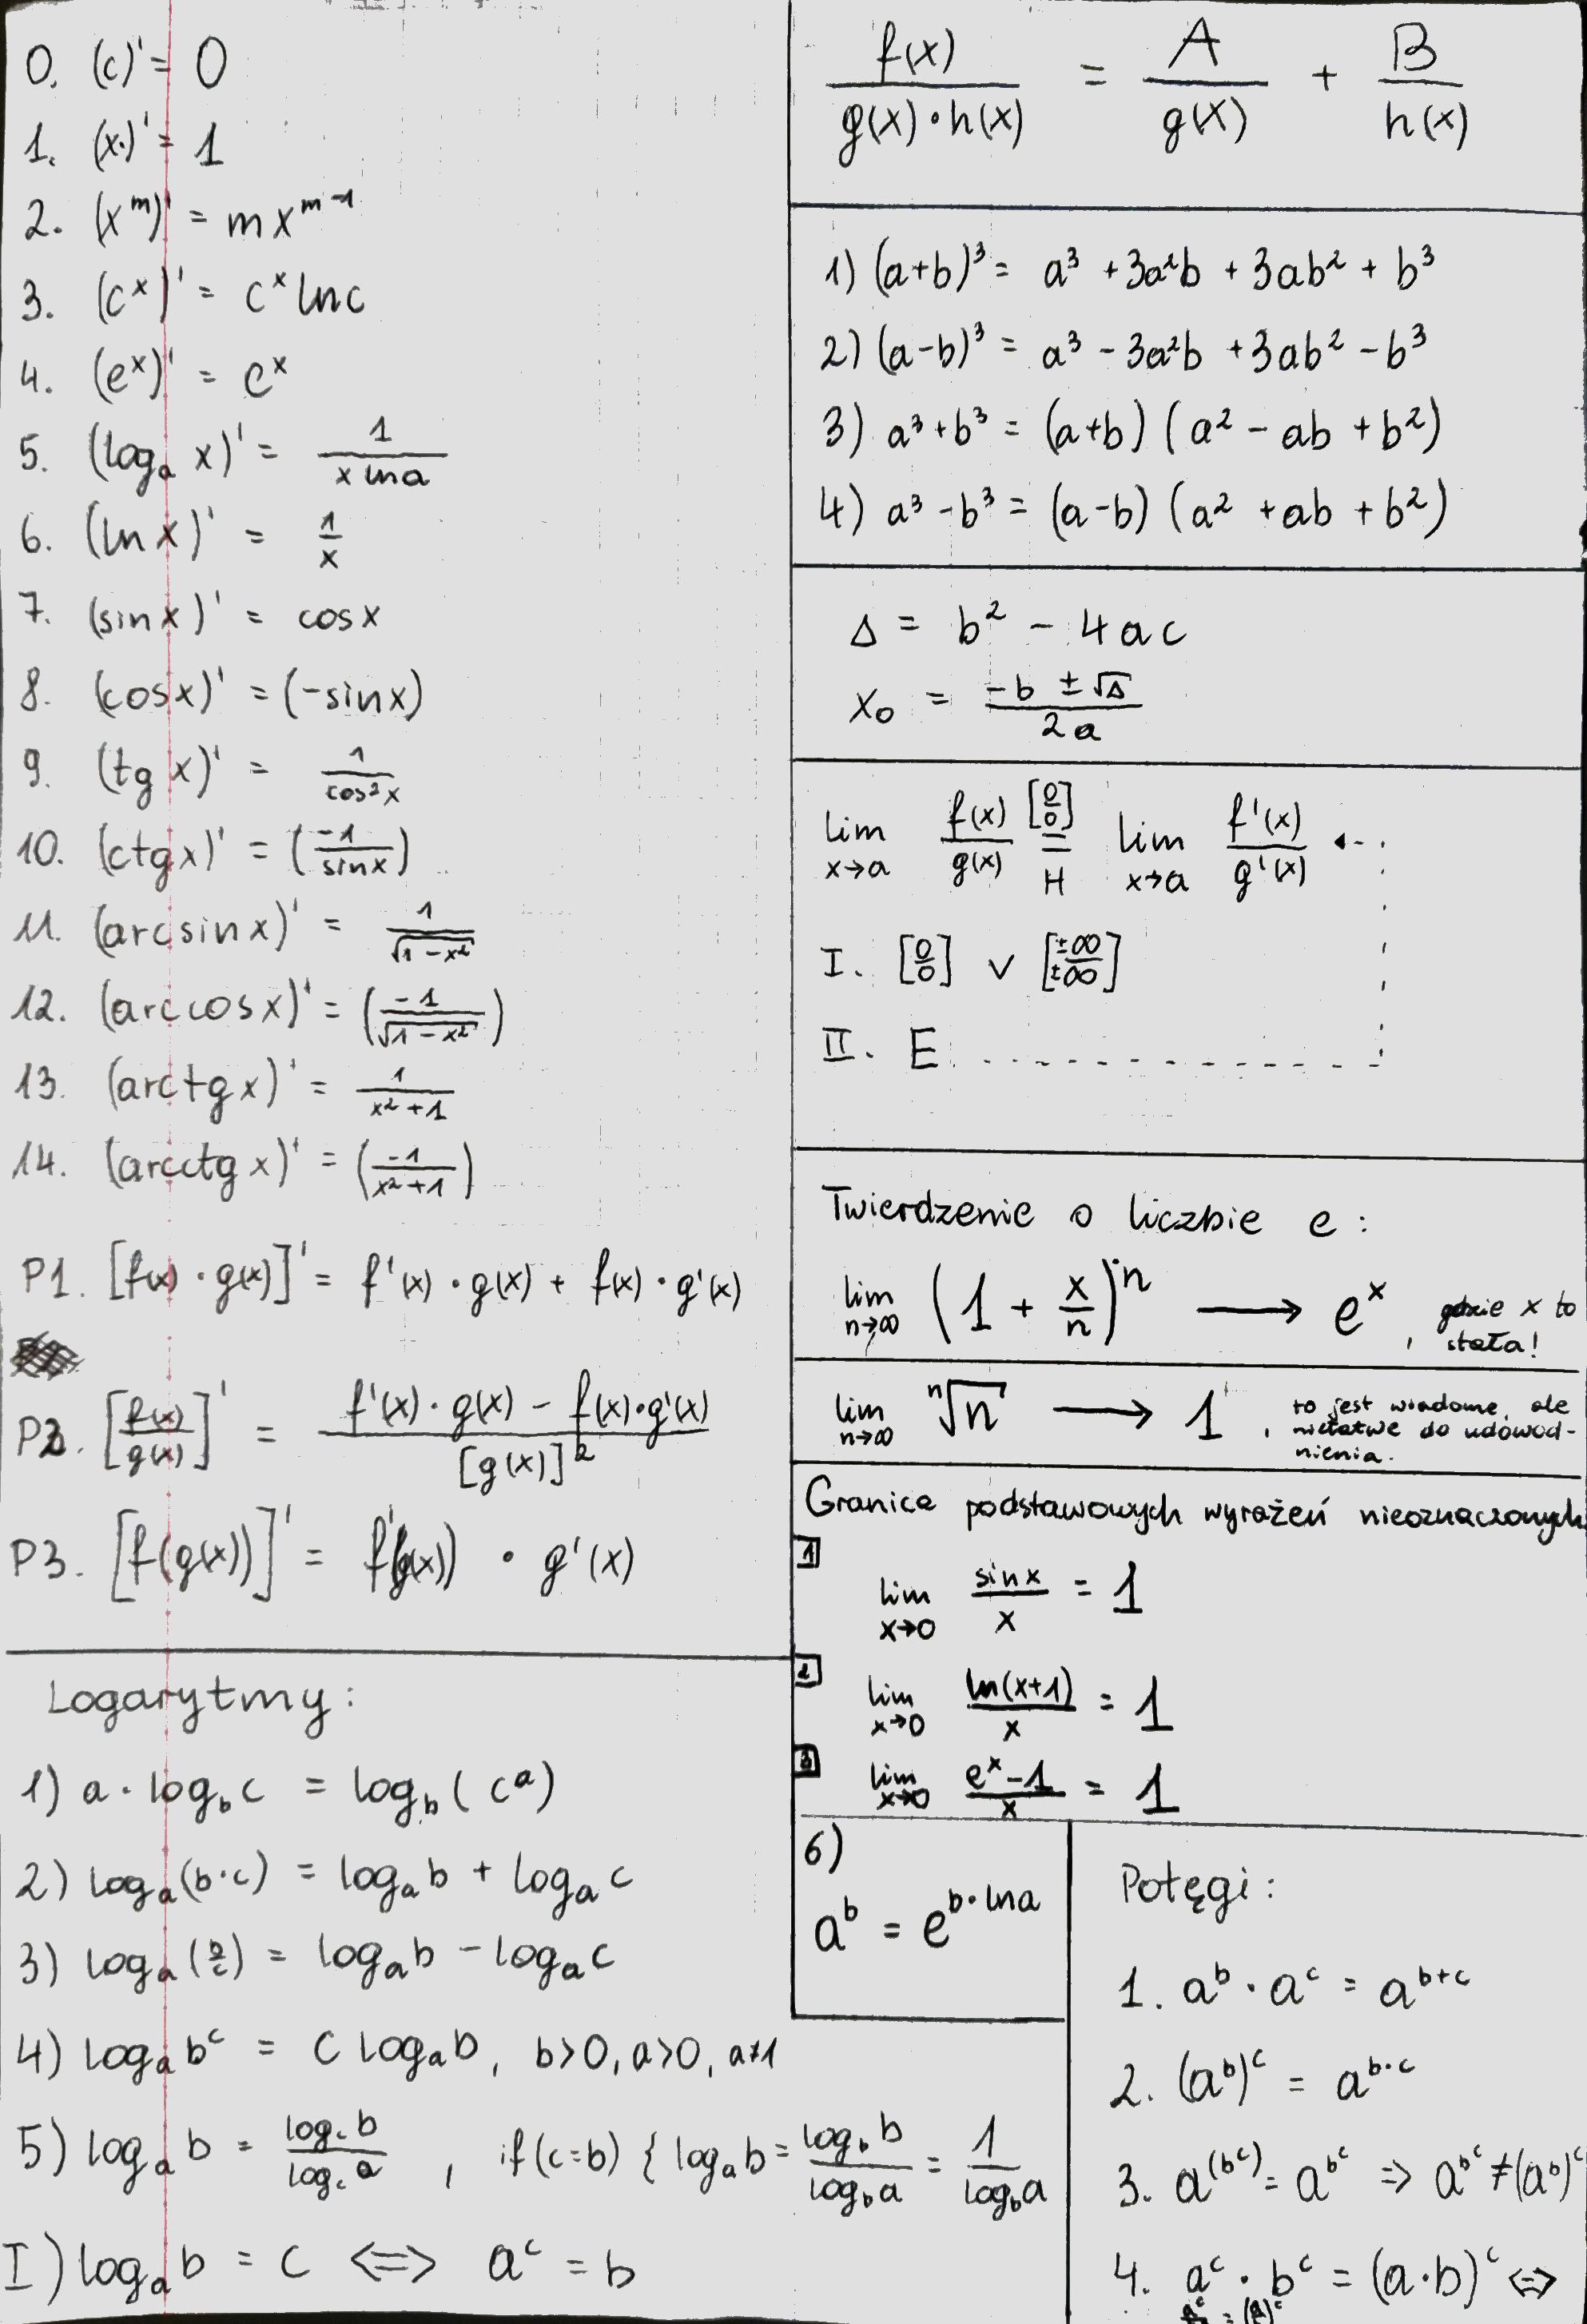 0. (c)' = 0
1. (x)' = 1
2. (x^m)' = mx^{m-1}
3. (c^x)' = c^x ln c
4. (e^x)' = e^x
5. (log_a x)' = 1/(x ln a)
6. (ln x)' = 1/x
7. (sin x)' = cos x
8. (cos x)' = (-sin x)
9. (tg x)' = 1/(cos²x)
10. (ctg x)' = (-1/(sin x))
11. (arcsin x)' = 1/√(1-x²)
12. (arccos x)' = (-1/√(1-x²))
13. (arctg x)' = 1/(x²+1)
14. (arcctg x)' = (-1/(x²+1))
P1. [f(x)·g(x)]' = f'(x)·g(x) + f(x)·g'(x)
P2. [f(x)/g(x)]' = (f'(x)·g(x) - f(x)·g'(x))/[g(x)]²
P3. [f(g(x))]' = f'(g(x)) · g'(x)
Logarytmy:
1) a·log_b c = log_b(c^a)
2) log_a(b·c) = log_a b + log_a c
3) log_a(b/c) = log_a b - log_a c
4) log_a b^c = c log_a b, b>0, a>0, a≠1
5) log_a b = (log_c b)/(log_c a), if (c=b) { log_a b = (log_b b)/(log_b a) = 1/(log_b a)
I) log_a b = c <=> a^c = b
f(x)/(g(x)·h(x)) = A/g(x) + B/h(x)
1) (a+b)³ = a³ + 3a²b + 3ab² + b³
2) (a-b)³ = a³ - 3a²b + 3ab² - b³
3) a³+b³ = (a+b)(a² - ab + b²)
4) a³-b³ = (a-b)(a² + ab + b²)
Δ = b² - 4ac
x₀ = (-b ± √Δ)/(2a)
lim x→a f(x)/g(x) [0/0] =_H lim x→a f'(x)/g'(x)
I. [0/0] ∨ [±∞/±∞]
II. E
Twierdzenie o liczbie e:
lim n→∞ (1 + x/n)^n ⟶ e^x, gdzie x to
stała!
lim n→∞ ⁿ√n ⟶ 1, to jest wiadome, ale
niełatwe do udowod-
nienia.
Granice podstawowych wyrażeń nieoznaczonych
1
lim x→0 (sin x)/x = 1
2
lim x→0 ln(x+1)/x = 1
3
lim x→0 (e^x - 1)/x = 1
6)
a^b = e^{b·ln a}
Potęgi:
1. a^b · a^c = a^{b+c}
2. (a^b)^c = a^{b·c}
3. a^{(b^c)} = a^{b^c} => a^{b^c} ≠ (a^b)^c
4. a^c · b^c = (a·b)^c <=>